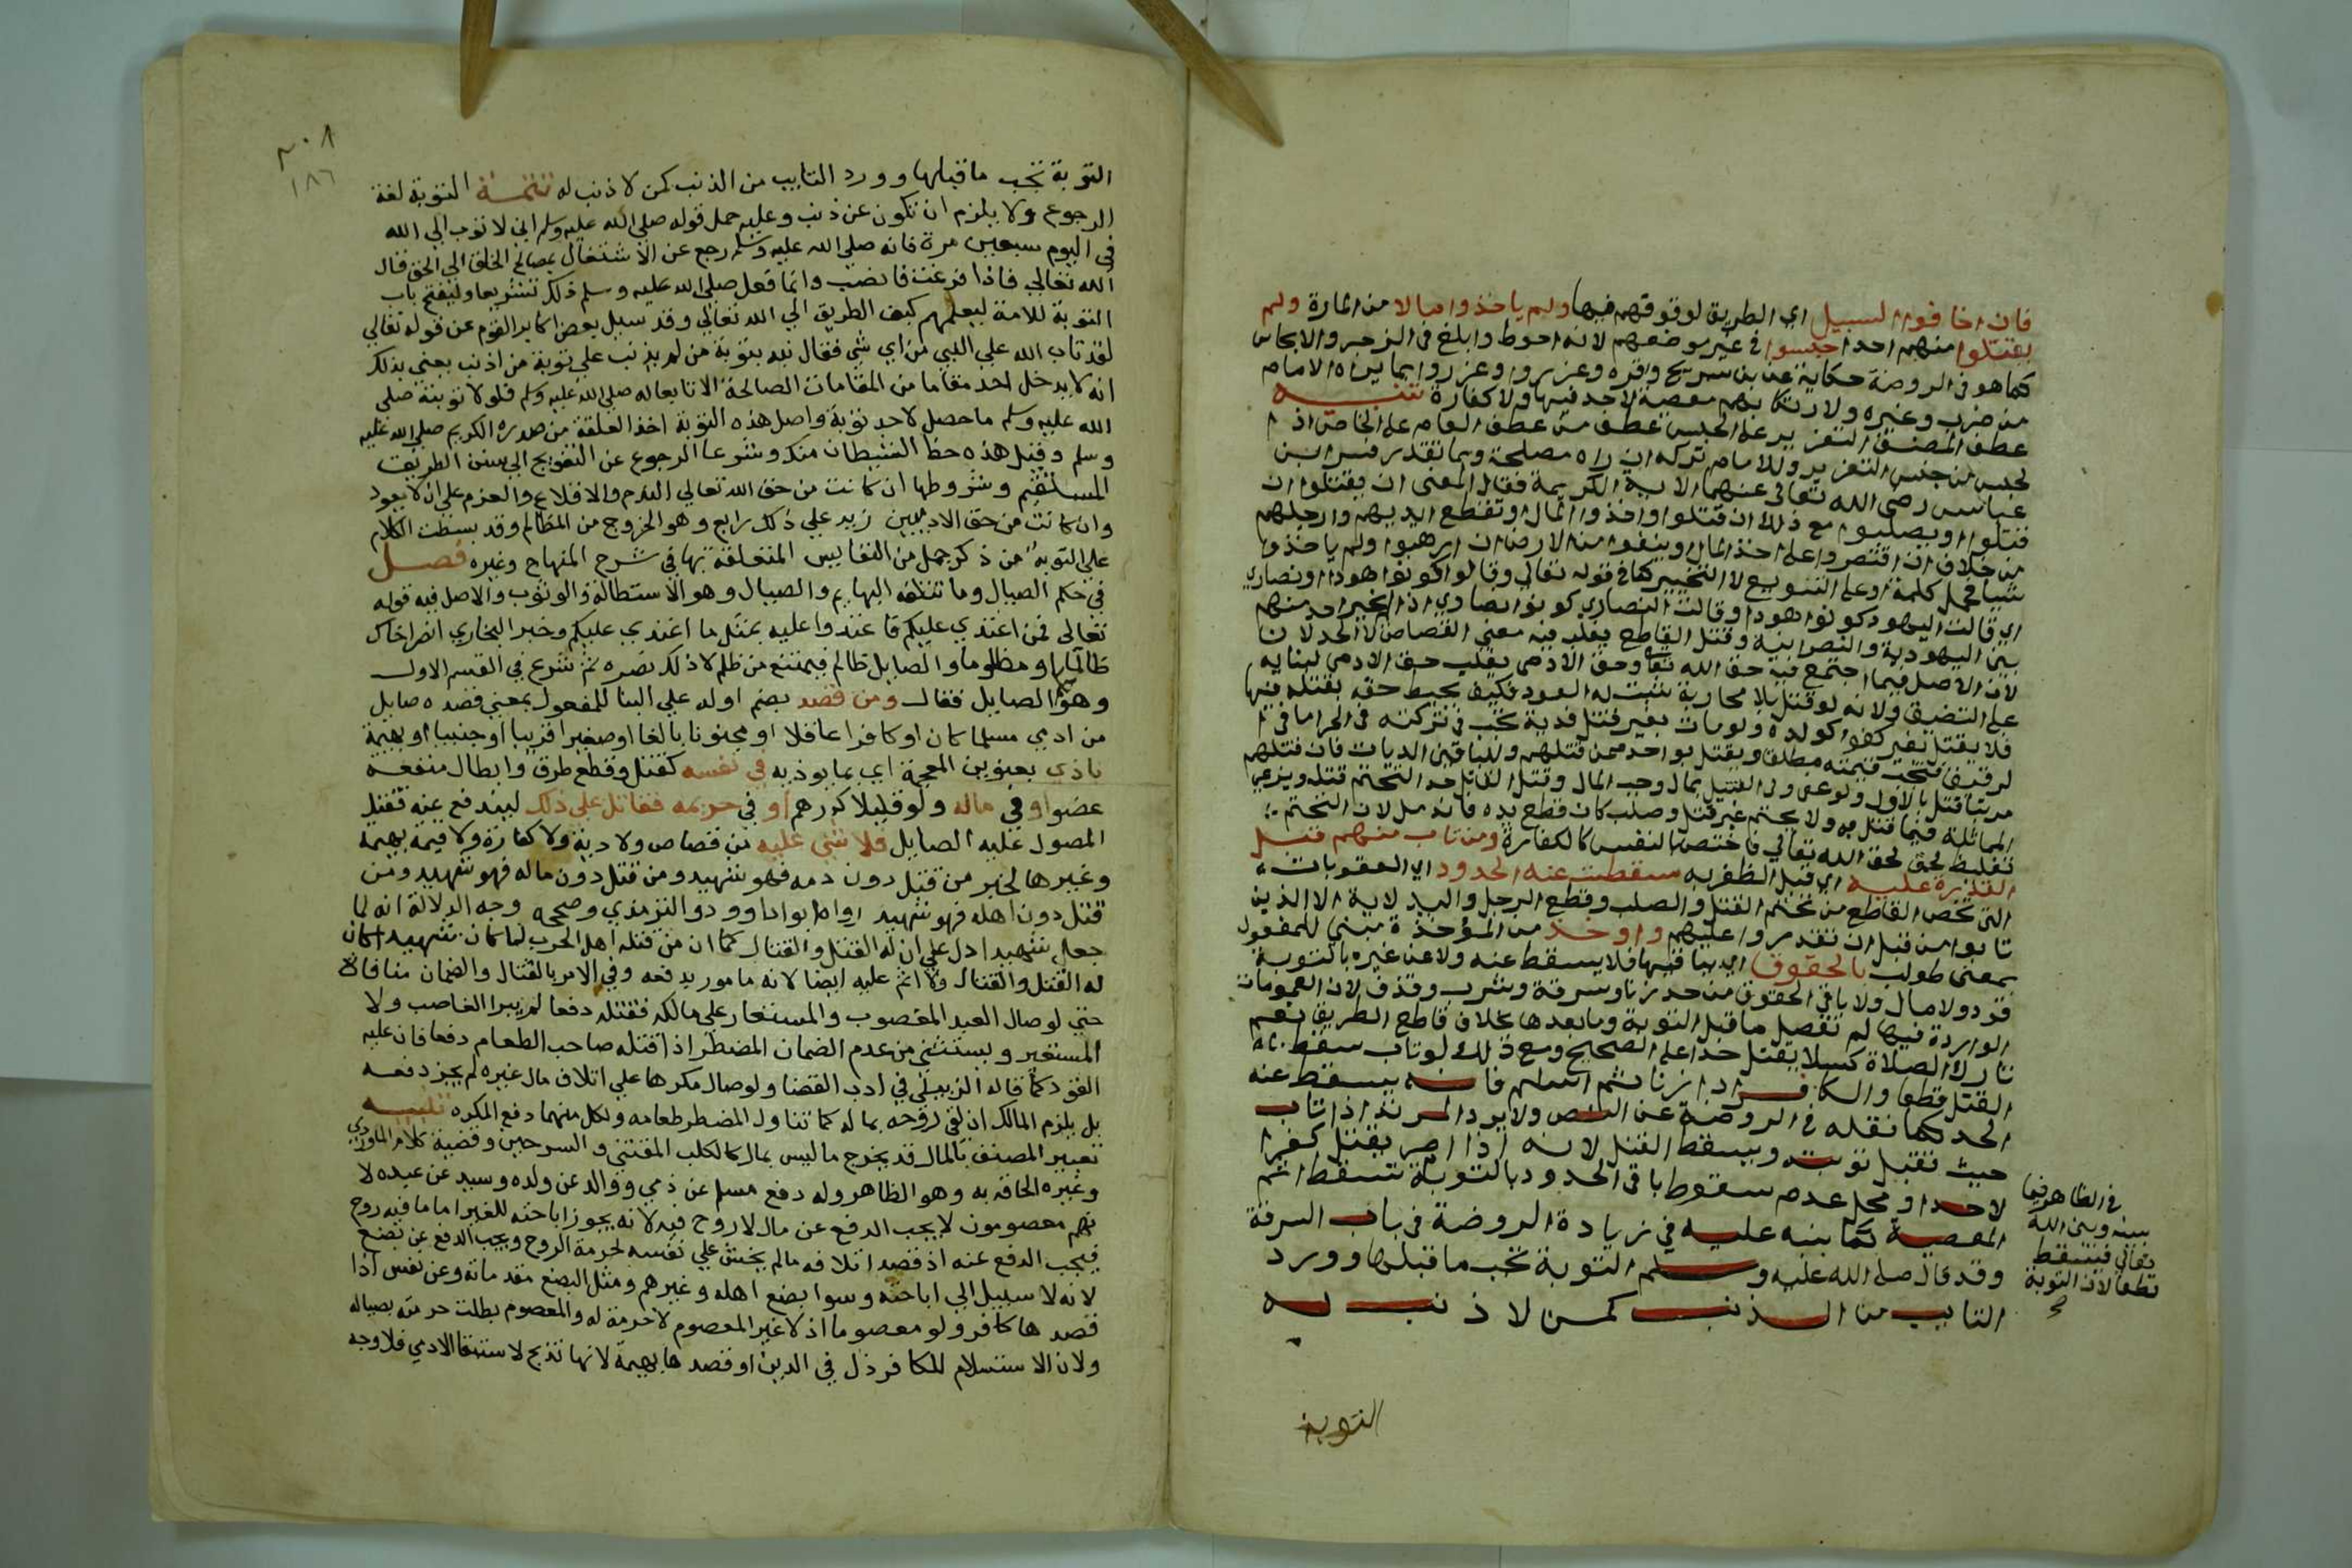 فان اخافوا السبيل اي الطريق لوقوفهم فيها ولم ياخذوا مالا من المارة ولم
يقتلوا منهم احدا حبسوا في غير موضعهم لانه احوط وابلغ في الزجر والايحاش
كما هو في الروضة حكاية عن بن سريج واقره وعزروا وعزروا بما يراه الامام
من ضرب وغيره ولارتكابهم معصية لاحد فيها ولا كفارة تنبيه
عطف المصنف التعزير على الحبس عطف من عطف العام على الخاص اذ ا
لحبس من جنس التعزير وللامام تركه ان راه مصلحة وبما تقدر فسر ابن
عباس رضي الله تعالى عنهما الاية الكريمة فقال المعنى ان يقتلوا ان
قتلوا او يصلبوا مع ذلك ان قتلوا واخذوا المال او تقطع ايديهم وارجلهم
من خلاف ان اقتصروا على اخذ المال او ينفوا من الارض ان ارهبوا ولم ياخذوا
شيا فحمل كلمة او على التنويع لا التخيير كما في قوله تعالى وقالوا كونوا هودا او نصارى
اي قالت اليهود كونوا هودا وقالت النصارى كونوا نصارى اذ لم يخير احد منهم
بين اليهودية والنصرانية وقتل القاطع يغلب فيه معنى القصاص لا الحد لان ا
لان الاصل فيما اجتمع فيه حق الله تعا وحق الادمي يغلب حق الادمي لبنايه
على التضيق ولانه لو قتل بلا محاربة ثبت له القود فكيف يحبط حقه بقتله فيها
فلا يقتل بغير كفو كولده ولو مات بغير قتل فدية تجب في تركته في الحر اما في ا
لرقيق فتجب قيمته مطلقا ويقتل بواحد ممن قتلهم وللباقين الديات فان قتلهم
مرتبا قتل بالاول ولو عفى ولي القتيل بمال وجب المال وقتل القاتل حد التحتم قتله ويراعي
المماثلة فيما قتل به ولا يتحتم غير قتل وصلب كان قطع يده فاندمل لان التحتم
تغليظ لحق لحق الله تعالى فاختص بالنفس كالكفارة ومن تاب منهم قبل
القدرة عليه اي قبل الظفر به سقطت عنه الحدود اي العقوبات
التي تخص القاطع من تحتم القتل والصلب وقطع الرجل واليد لاية الا الذين
تابوا من قبل ان تقدروا عليهم واوخذ من المؤخذة مبني للمفعول
بمعنى طولب بالحقوق اي بباقيها فلا يسقط عنه ولا عن غيره بالتوبة
قود ولا مال ولا باقي الحقوق من حد زنا وسرقة وشرب وقذف لان العمومات
الواردة فيها لم تفصل ما قبل التوبة وما بعدها بخلاف قاطع الطريق نعم
تارك الصلاة كسلا يقتل حدا على الصحيح ومع ذلك لو تاب سقط
القتل قطعا والكافر اذا زنا ثم اسلم فانه يسقط عنه
الحد كما نقله في الروضة عن النص ولا يرد المرتد اذا تاب
حيث تقبل توبته ويسقط القتل لانه اذا اصر يقتل كفرا
لا حدا ومحل عدم سقوط باقي الحدود بالتوبة تسقط اثم
المعصية كما بينه عليه في زيادة الروضة في باب السرقة
وقد قال صلى الله عليه وسلم التوبة تجب ما قبلها وورد
التايب من الذنب كمن لا ذنب له
في الظاهر فيما
بينه وبين الله
تعالى فيسقط
قطعا لان التوبة
التوبة
٢٠٨
١٨٦
التوبة تجب ما قبلها وورد التايب من الذنب كمن لا ذنب له تتمة التوبة لغة
الرجوع ولا يلزم ان تكون عن ذنب وعليه حمل قوله صلى الله عليه وسلم اني لاتوب الى الله
في اليوم سبعين مرة فانه صلى الله عليه وسلم رجع عن الاشتغال بمصالح الخلق الى الحق قال
الله تعالى فاذا فرغت فانصب وانما فعل صلى الله عليه وسلم ذلك تشريعا وليفتح باب
التوبة للامة ليعلمهم كيف الطريق الى الله تعالى وقد سيل بعض اكابر القوم عن قوله تعالى
لقد تاب الله على النبي من اي شي فقال نبه بتوبة من لم يذنب على توبة من اذنب يعني بذلك
انه لا يدخل احد مقاما من المقامات الصالحة الا تابعا له صلى الله عليه وسلم فلولا توبته صلى
الله عليه وسلم ما حصل لاحد توبة واصل هذه التوبة اخذ العلقة من صدره الكريم صلى الله عليه
وسلم وقيل هذه حظ الشيطان منك وشرعا الرجوع عن التعويج الى سنن الطريق
المستقيم وشروطها ان كانت من حق الله تعالى الندم والاقلاع والعزم على ان لا يعود
وان كانت من حق الادميين زيد على ذلك رابع وهو الخروج من المظالم وقد بسطت الكلام
على التوبة من ذكر جمل من النفايس المتعلقة بها في شرح المنهاج وغيره فصل
في حكم الصيال وما تتلفه البهايم والصيال وهو الاستطالة والوثوب والاصل فيه قوله
تعالى فمن اعتدي عليكم فاعتدوا عليه بمثل ما اعتدي عليكم وخبر البخاري انصر اخاك
ظالما او مظلوما والصايل ظالم فيمتنع من ظلم لا ذلك نصره ثم شرع في القسم الاول
وهو الصايل فقال ومن قصد بضم اوله على البنا للمفعول بمعني قصده صايل
من ادمي مسلما كان او كافرا عاقلا او مجنونا بالغا او صغيرا قريبا او جنبيا او بهيمة
باذي بعنوين المعجمة اي بما يوذيه في نفسه كقتل وقطع طرق وابطال منفعة
عضو او في ماله ولو قليلا كدرهم او في حريمه فقاتل على ذلك ليندفع عنه فقتل
المصول عليه الصايل فلا شي عليه من قصاص ولا دية ولا كفارة ولا قيمة بهيمة
وغيرها لخبر من قتل دون دمه فهو شهيد ومن قتل دون ماله فهو شهيد ومن
قتل دون اهله فهو شهيد رواه ابو داوود والترمذي وصححه وجه الدلالة انه لما
جعل شهيدا دل على ان له القتل والقتال كما ان من قتله اهل الحرب لما كان شهيدا كان
له القتل والقتال ولا اثم عليه ايضا لانه مامور بدفعه وفي الامر بالقتال والضمان منافاة
حتي لو صال العبد المغصوب والمستعار على مالكه فقتله دفعا لم يبرا الغاصب ولا
المستعير ويستثني من عدم الضمان المضطر اذا قتله صاحب الطعام دفعا فان عليه
القود كما قاله الزبيلي في ادب القضا ولو صال مكرها على اتلاف مال غيره لم يجز دفعه
بل يلزم المالك ان يقي روحه بماله كما تناول المضطر طعامه ولكل منهما دفع المكره تنبيه
تعبير المصنف بالمال قد يخرج ما ليس بمال كالكلب المقتني والسرجين وقضية كلام الماوردي
وغيره الحاقه به وهو الظاهر وله دفع مسلم عن ذمي ووالد عن ولده وسيد عن عبده لا
نهم معصومون لا يجب الدفع عن مال لا روح فيه لانه يجوز اباحته للغير اما ما فيه روح
فيجب الدفع عنه اذ قصد اتلافه مالم يخش على نفسه لحرمة الروح ويجب الدفع عن بضع
لانه لا سبيل الى اباحته وسوا بضع اهله وغيرهم ومثل البضع مقدماته وعن نفس اذا
قصدها كافر ولو معصوما اذ لا غير المعصوم لا حرمة له والمعصوم بطلت حرمته بصياله
ولان الاستسلام للكافر ذل في الدين او قصدها بهيمة لانها تذبح لاستبقا الادمي فلا وجه